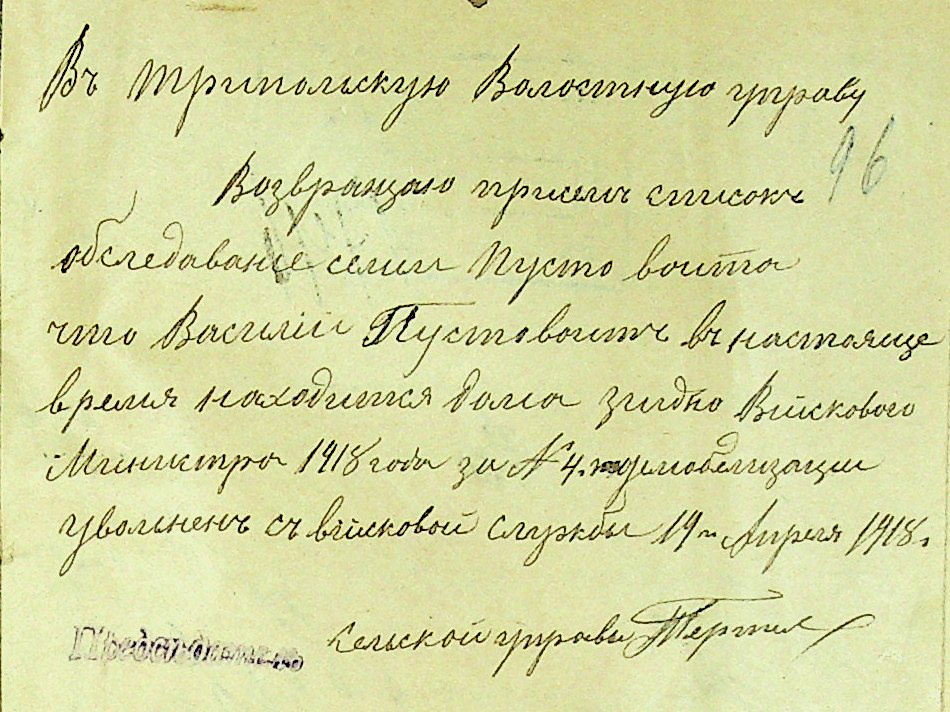 Въ Трипольскую Волостную управу
96
Возвращаю присемъ списокъ
обследавание семии Пусто воита
что Василий Пустовоитъ въ настояще
время находится дома згидно Війскового
Министра 1918 года за № 4. демобелизации
увольненъ съ війсковой службы 19го Апреля 1918 г
Председатель сельской управы